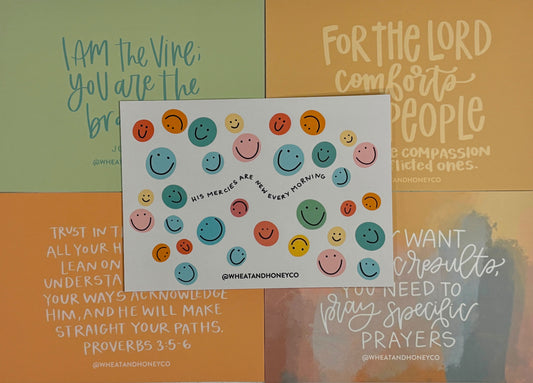 I AM the Vine;
you are the
@WHEATAND
FOR THE LORD
comforts
PEOPLE
COMPASSION
ONES.
ANDHONEYCO
HIS MERCIES ARE NEW EVERY MORNING
@WHEATANDHONEYCO
TRUST IN
ALL YOUR
LEAN ON
YOUR WAYS ACKNOWLEDGE
HIM, AND HE WILL MAKE
STRAIGHT YOUR PATHS.
PROVERBS 3:5-6
@WHEATANDHONEYCO
WANT
results,
YOU NEED TO
pray specific
PRAYERS
@WHEATANDHONEYCO